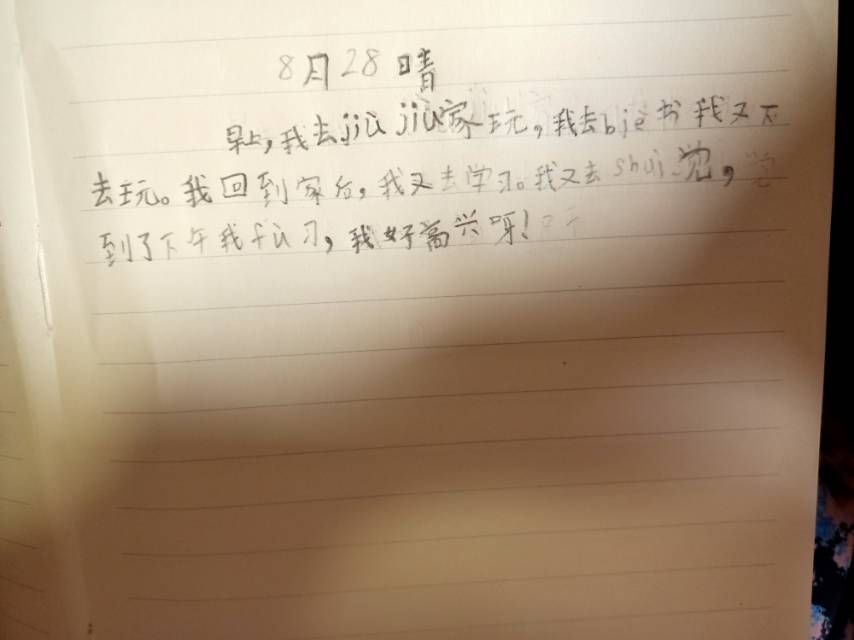 8月28晴
早上,我去jiù jiu家玩,我去bié书我又下
去玩。我回到家后,我又去学习。我又去shuì觉,
到了下午我fù习,我好高兴呀!